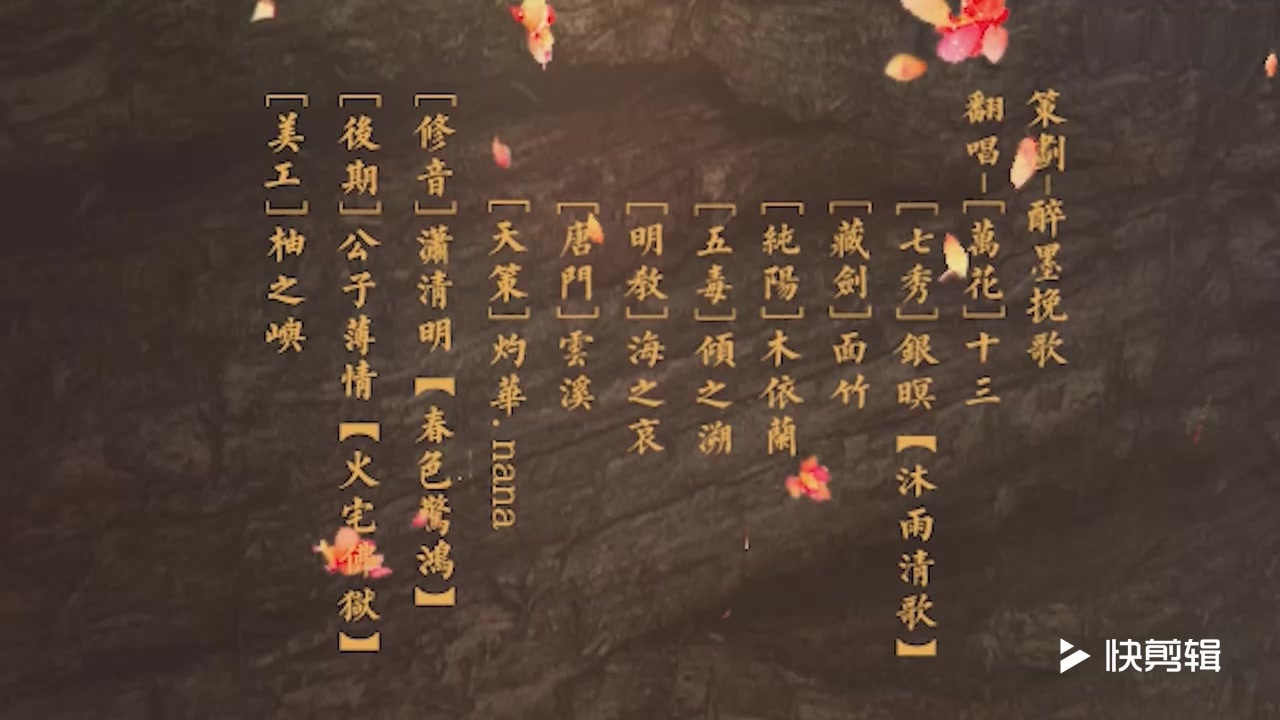 策劃－醉墨挽歌
翻唱－［萬花］十三
［七秀］銀暝【沐雨清歌】
［藏劍］面竹
［純陽］木依蘭
［五毒］傾之溯
［明教］海之哀
［唐門］雲溪
［天策］灼華.nana
［修音］瀟清明【春色驚鴻】
［後期］公子薄情【火宅佛獄】
［美工］柚之嶼
快剪辑